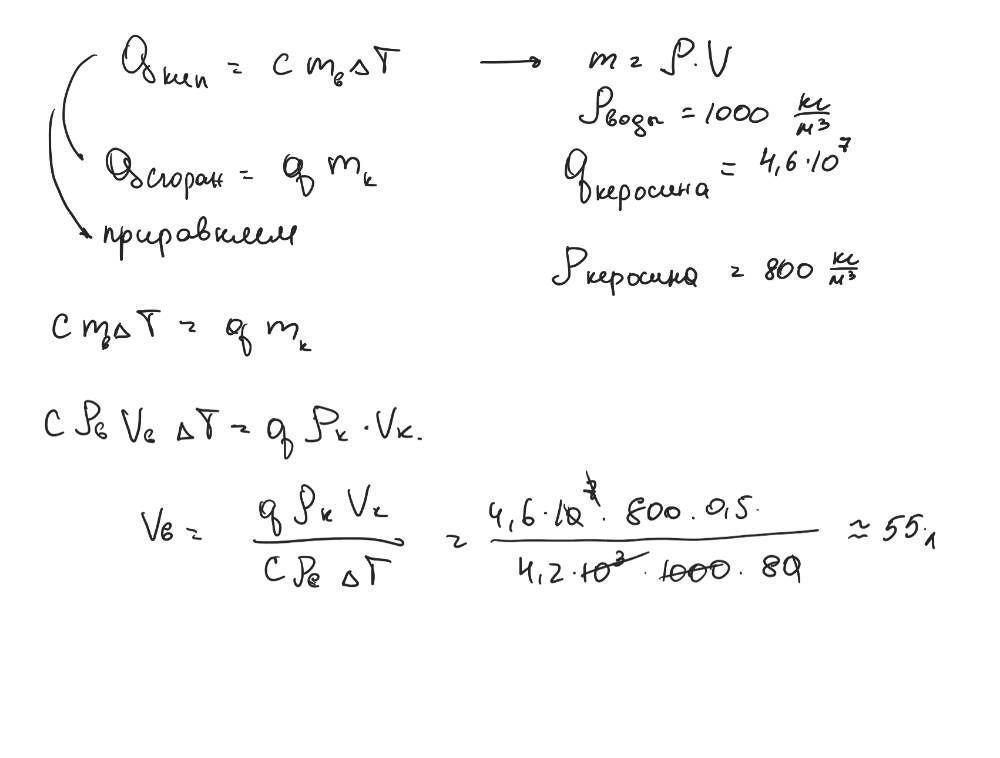 Qкип = c mв ΔT → m = ρ·V
ρводы = 1000 кг/м³
Qсгоран = q mк
qкеросина = 4,6·10⁷
приравняем
ρкеросина = 800 кг/м³
c mв ΔT = q mк
c ρв Vв ΔT = q ρк · Vк.
Vв = q ρк Vк / c ρв ΔT = 4,6·10⁷ · 800 · 0,5 / 4,2·10³ · 1000 · 80 ≈ 55